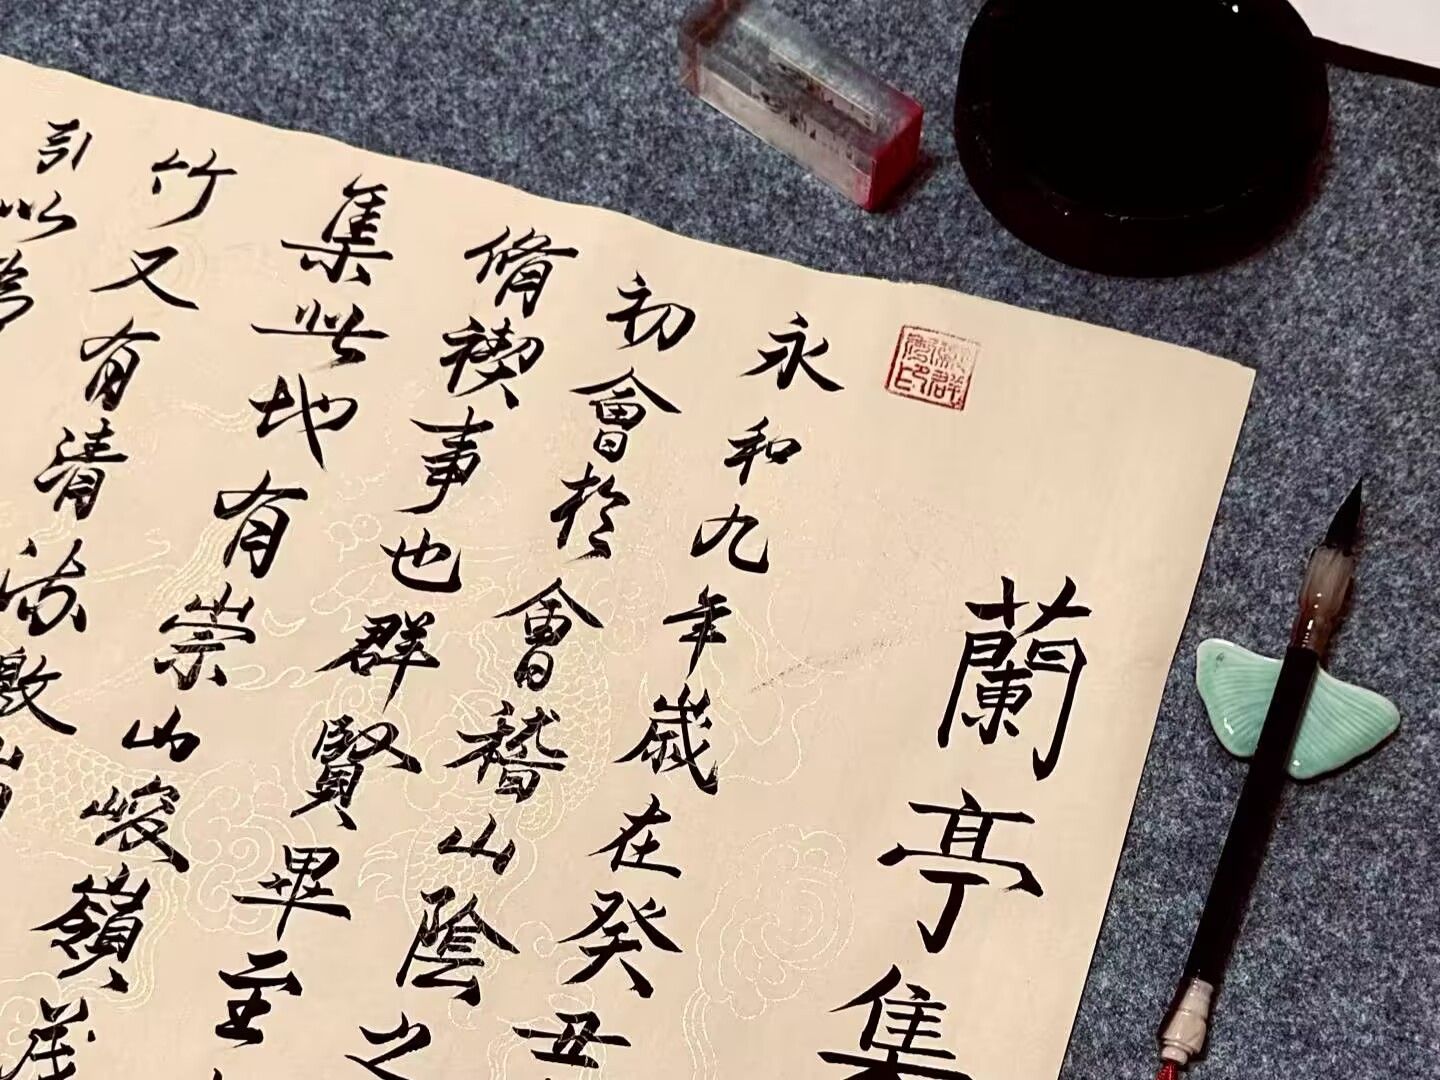 蘭亭集
永和九年歲在癸丑
初會於會稽山陰之
脩禊事也群賢畢至
集此地有崇山峻嶺茂
竹又有清流激
引以為